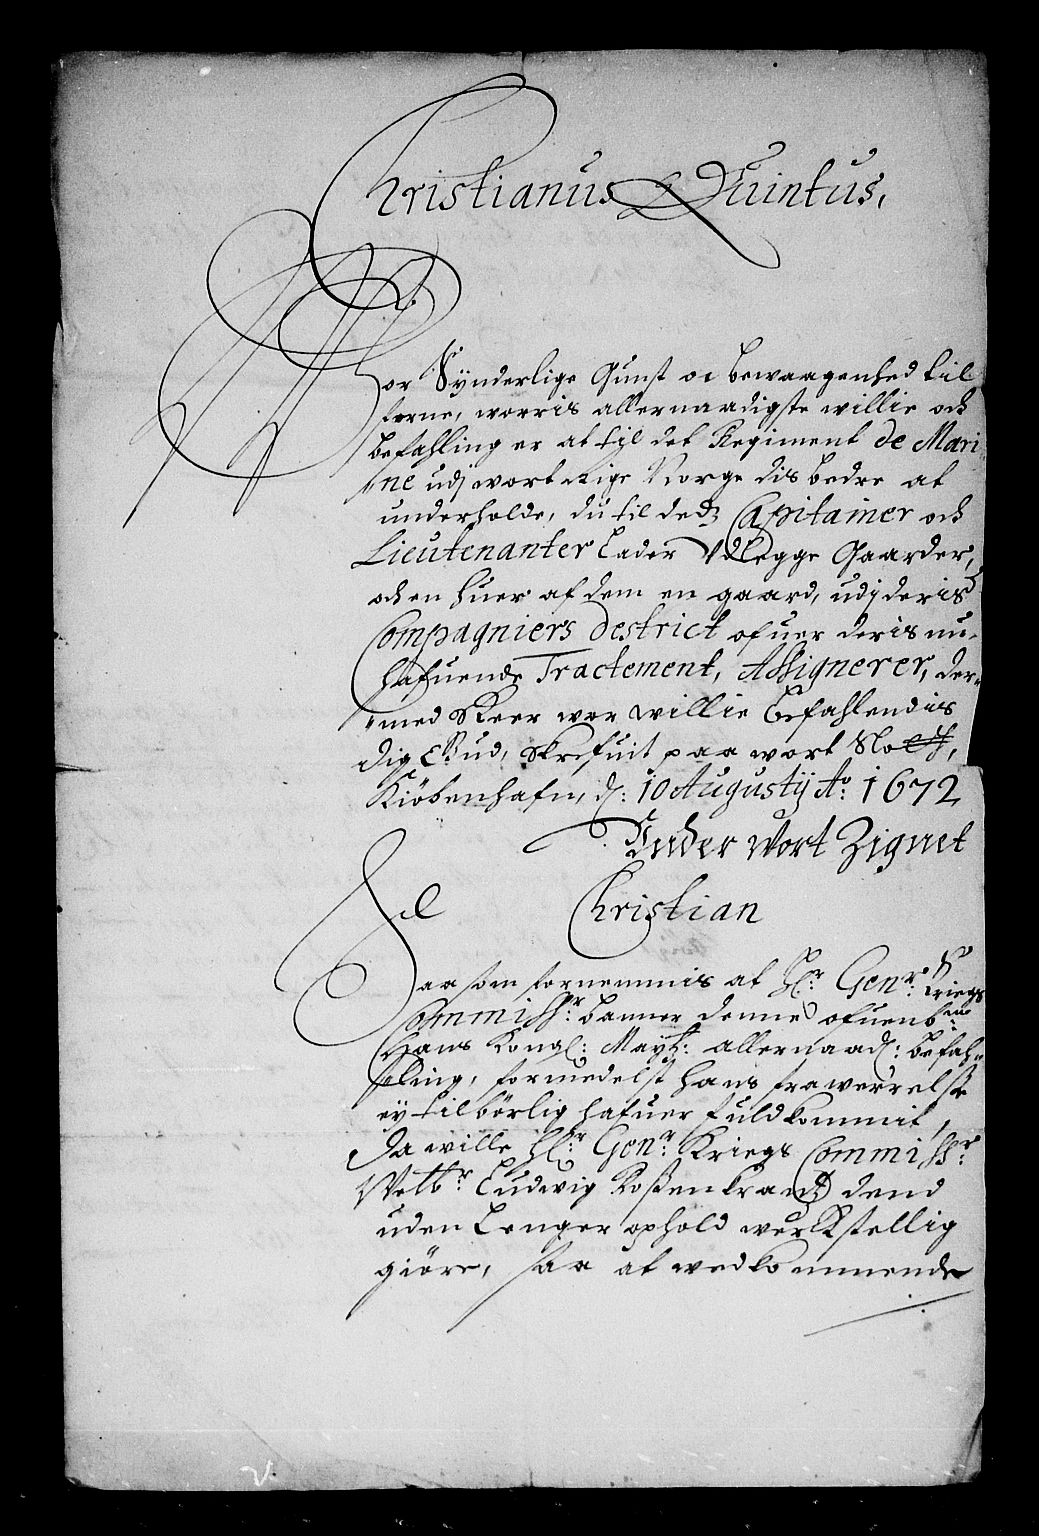 Christianus Quintus,
Vor Synderlige Gunst oc bewaagenhed til
forne, worris allernaadigste willie och
befahling er at til det Regiment de Mari
ne udj wort Rige Norge dis bedre at
underholde, du til dedz Capitainer och
Lieutenanter Lader Udlegge Gaarder,
och en huer af dem en gaard, udj deris
Compagniers destrict ofuer deris nu
hafuende Tractement, Assignerer, der
med skeer wor willie Befahlendis
dig Gud, skrefuit paa wort Slott,
Kiöbenhafn, d: 10 Augustij Ao: 1672
Under Wort Zignet
Christian
Saasom fornemmis at Hr: Genr: Kriegs
Commissr: Banner denne ofuenbne
Hans Kongl: Maytz: allernaad: befah
ling, formedelst hans frawerrelse
ey tilbörlig hafuer fuldkommit,
da wille Hr: Genr: Kriegs Commissr:
Welbr: Ludwig Rosenkrantz dend
uden Lenger ophold werckstellig
giöre, saa at wedkommende